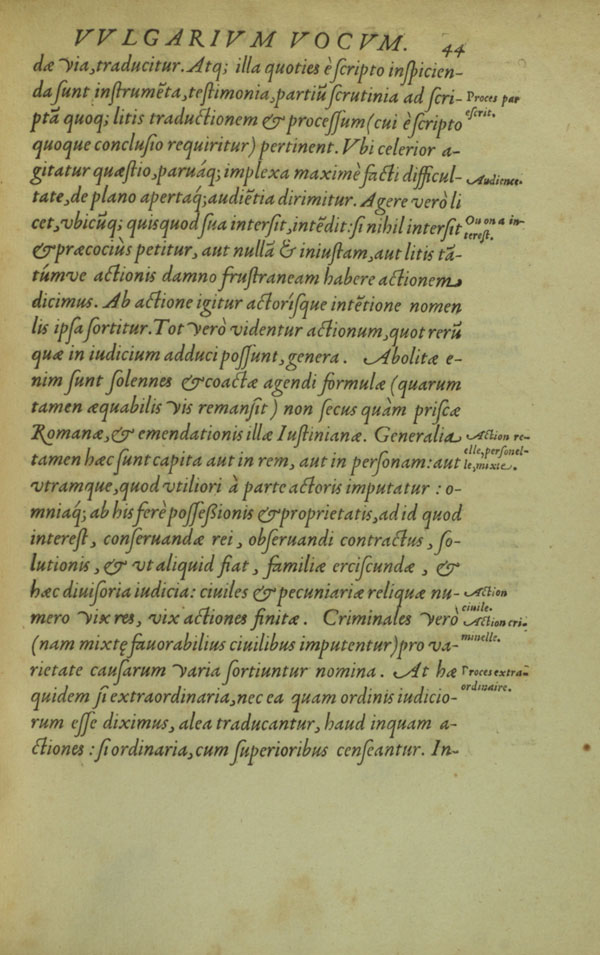 VVLGARIVM VOCVM. 44
dæ via, traducitur. Atq; illa quoties è scripto inspicien-
da sunt instrumēta, testimonia, partiū scrutinia ad scri-
Proces par escrit.
ptā quoq; litis traductionem & processum (cui è scripto
quoque conclusio requiritur) pertinent. Vbi celerior a-
gitatur quæstio, paruáq; implexa maximè facti difficul-
Audience.
tate, de plano apertáq; audiētia dirimitur. Agere verò li
cet, vbicūq; quisquod sua intersit, intēdit: si nihil intersit
Ou on a in-
terest.
& præcociùs petitur, aut nullā & iniustam, aut litis tā-
túmve actionis damno frustraneam habere actionem
dicimus. Ab actione igitur actorísque intētione nomen
lis ipsa sortitur. Tot verò videntur actionum, quot rerū
quæ in iudicium adduci possunt, genera. Abolitæ e-
nim sunt solennes & coactæ agendi formulæ (quarum
tamen æquabilis vis remansit) non secus quàm priscæ
Romanæ, & emendationis illæ Iustinianæ. Generalia
Action re-
elle, personel-
le, mixte.
tamen hæc sunt capita aut in rem, aut in personam: aut
vtramque, quod vtiliori à parte actoris imputatur : o-
mniaq́; ab his ferè possessionis & proprietatis, ad id quod
interest, conseruandæ rei, obseruandi contractus, so-
lutionis, & vt aliquid fiat, familiæ erciscundæ, &
hæc diuisoria iudicia: ciuiles & pecuniariæ reliquæ nu-
Action
ciuile.
mero vix res, vix actiones finitæ. Criminales verò
Action cri-
minelle.
(nam mixtę fauorabilius ciuilibus imputentur) pro va-
rietate causarum varia sortiuntur nomina. At hæ
Proces extra-
ordinaire.
quidem si extraordinaria, nec ea quam ordinis iudicio-
rum esse diximus, alea traducantur, haud inquam a-
ctiones : si ordinaria, cum superioribus censeantur. In-